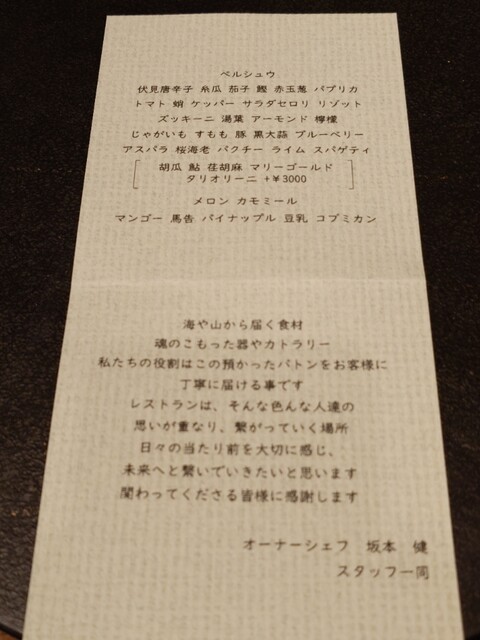 ペルシュウ
伏見唐辛子 糸瓜 茄子 鰹 赤玉葱 パプリカ
トマト 蛸 ケッパー サラダセロリ リゾット
ズッキーニ 湯葉 アーモンド 檸檬
じゃがいも すもも 豚 黒大蒜 ブルーベリー
アスパラ 桜海老 パクチー ライム スパゲティ
胡瓜 鮎 荏胡麻 マリーゴールド
タリオリーニ +¥3000
メロン カモミール
マンゴー 馬告 パイナップル 豆乳 コブミカン
海や山から届く食材
魂のこもった器やカトラリー
私たちの役割はこの預かったバトンをお客様に
丁寧に届ける事です
レストランは、そんな色んな人達の
思いが重なり、繋がっていく場所
日々の当たり前を大切に感じ、
未来へと繋いでいきたいと思います
関わってくださる皆様に感謝します
オーナーシェフ 坂本 健
スタッフ一同